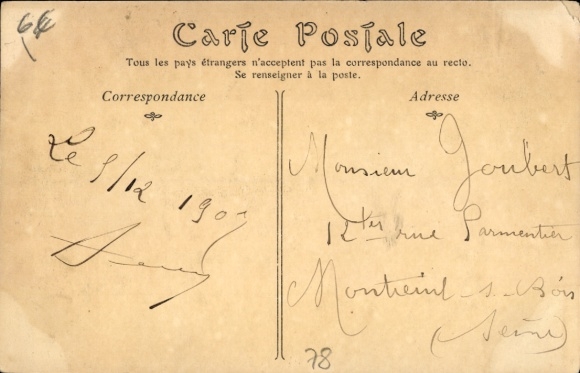 64
Carte Postale
Tous les pays étrangers n'acceptent pas la correspondance au recto.
Se renseigner à la poste.
Correspondance
Adresse
Le 5/12 190
Monsieur Joubert
12ter rue Parmentier
Montreuil-s-Bois
(Seine)
78